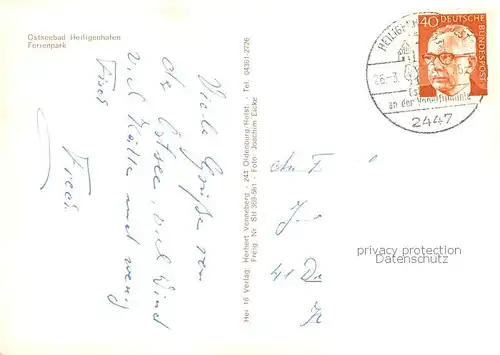 Ostseebad Heiligenhafen
Ferienpark
Viele Grüße von
der Ostsee, viel Wind
viel Kälte und wenig
Fisch
Fred.
Hei 16 Verlag: Herbert Venneberg - 244 Oldenburg/Holst. - Tel. 04361-2726
Freig. Nr. SH 359-561 - Foto: Joachim Eicke
HEILIGENHAFEN
26.-3.
an der Vogelfluglinie
2447
40 DEUTSCHE
BUNDESPOST
41 Du
privacy protection
Datenschutz